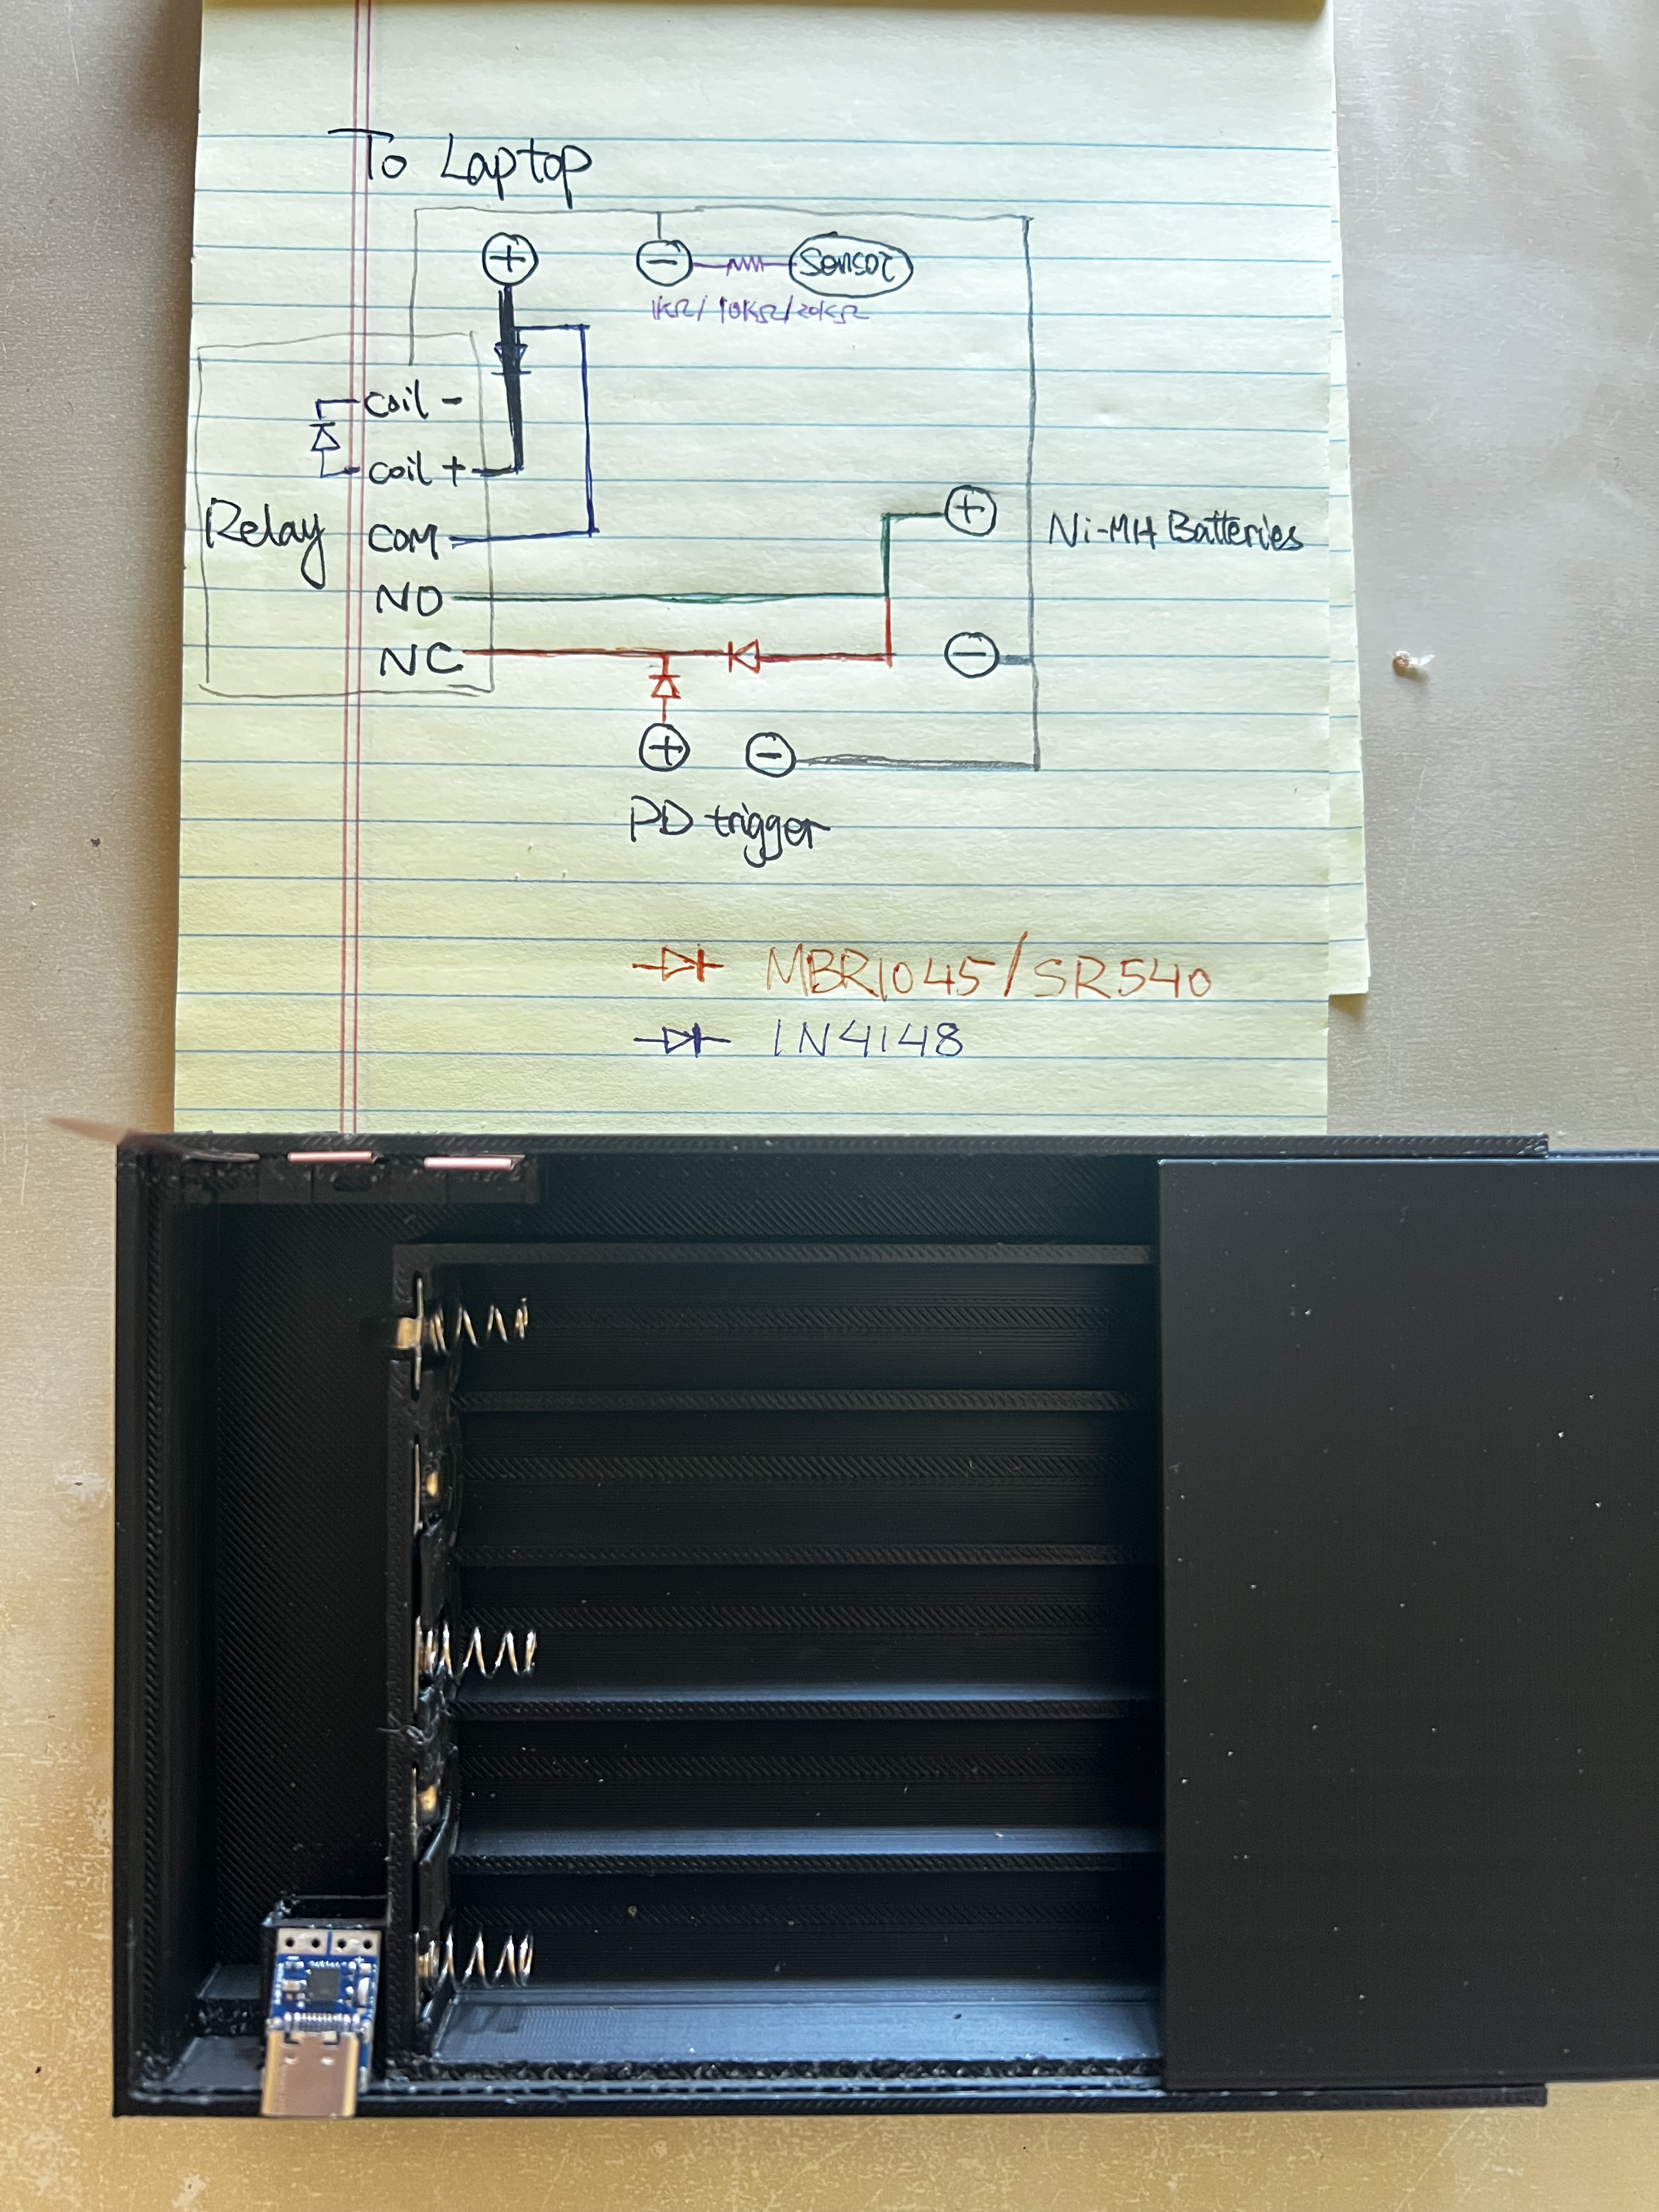 To Laptop
+ - Sensor
1KΩ/10KΩ/20KΩ
coil -
coil +
+
Relay COM Ni-MH Batteries
NO
NC -
+ -
PD trigger
MBR1045/SR540
1N4148